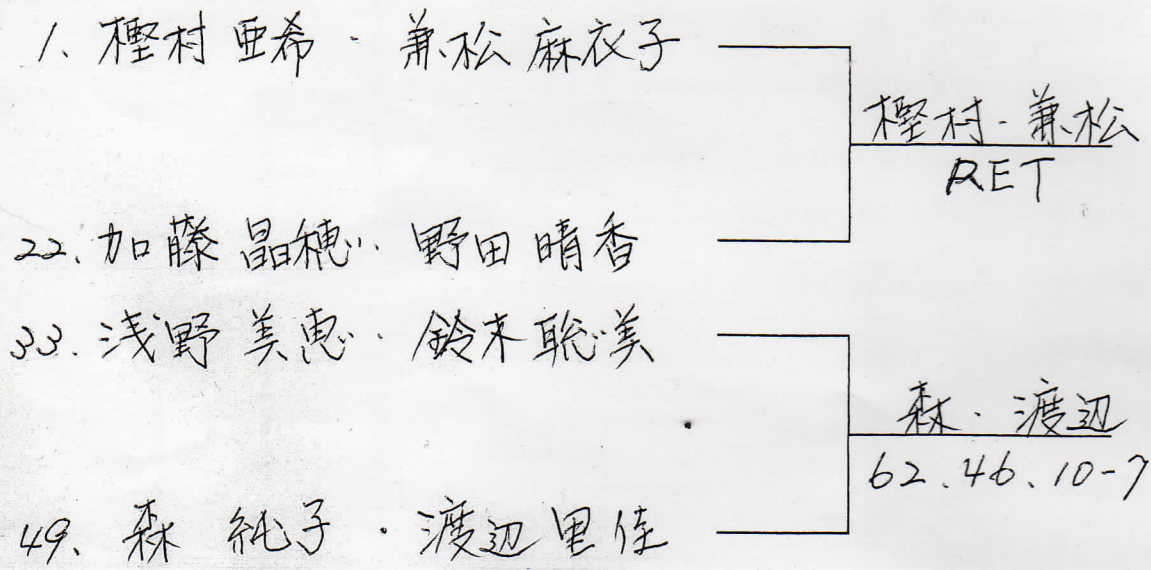 1. 樫村 亜希 · 兼松 麻衣子
樫村 · 兼松
RET
22. 加藤 晶穂 · 野田 晴香
33. 浅野 美恵 · 鈴木 聡美
森 · 渡辺
62. 46. 10-7
49. 森 純子 · 渡辺 里佳